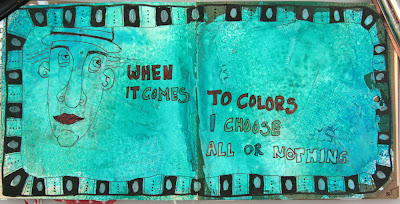 WHEN
IT COMES
TO COLORS
I CHOOSE
ALL OR NOTHING